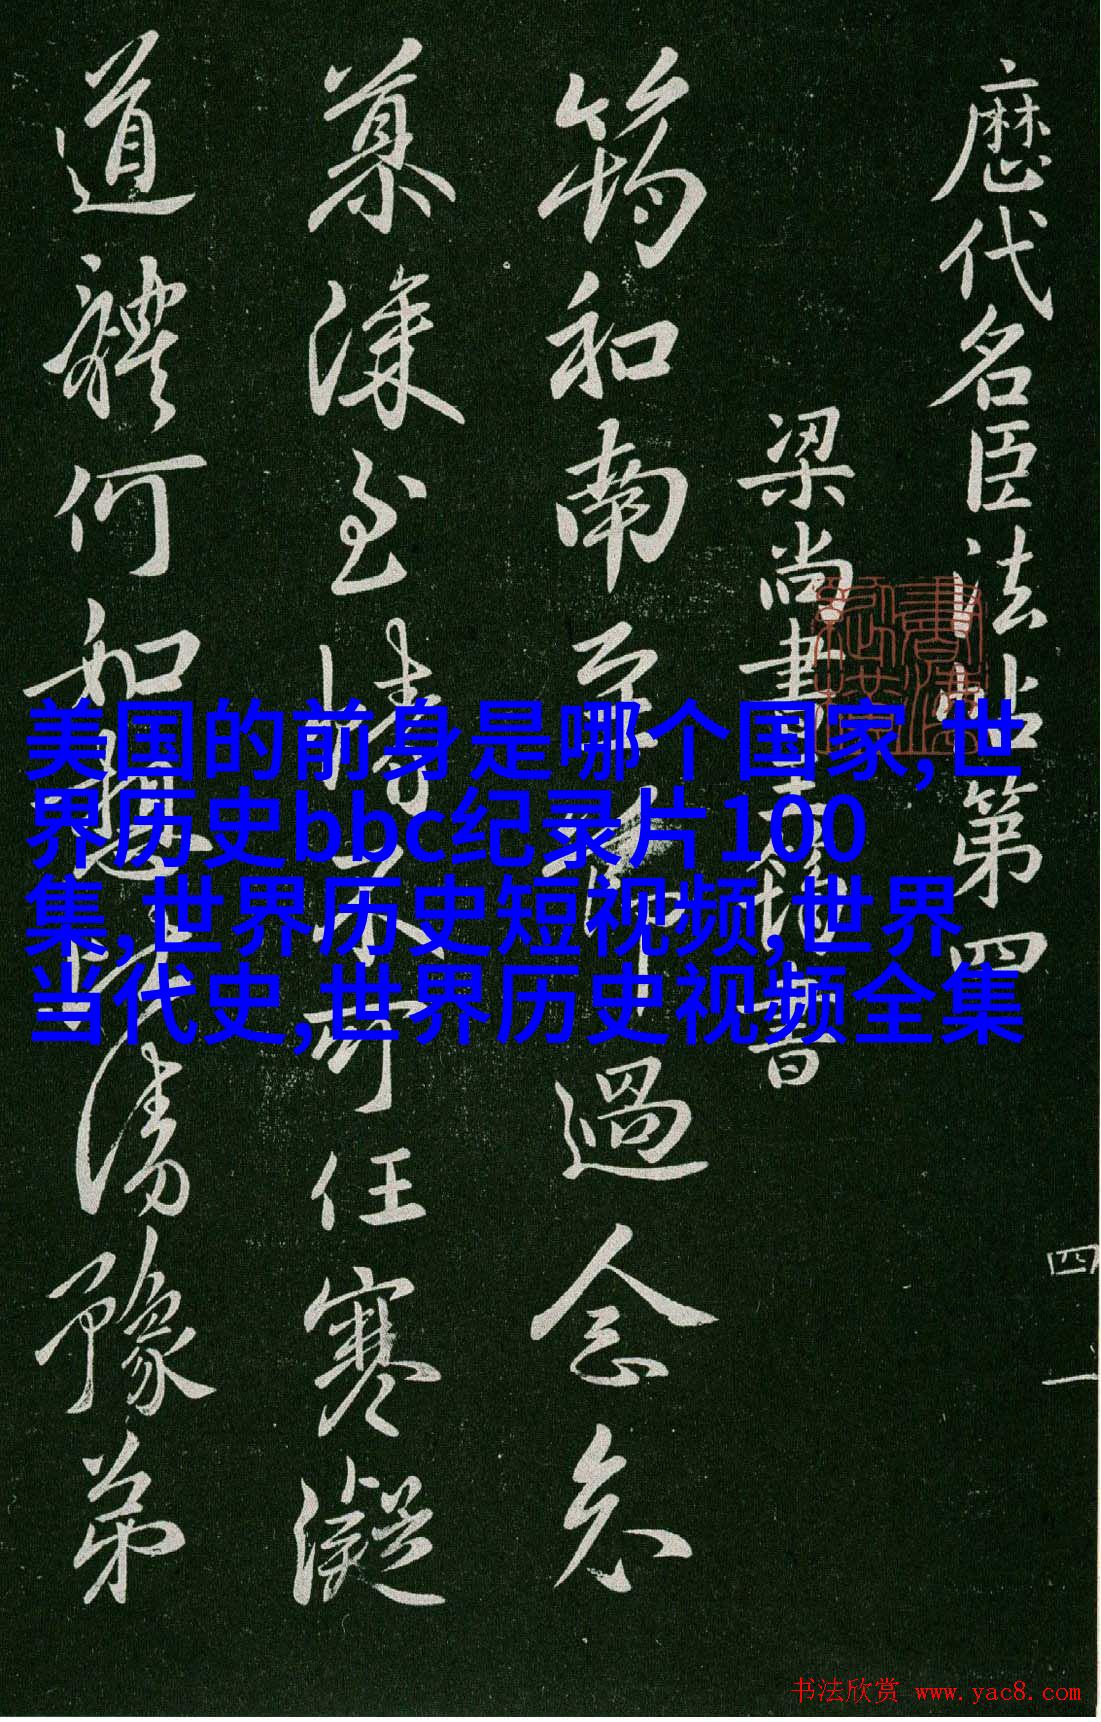 歷代名臣法帖第四
梁尚書王筠書
筠和南至節過念
慕深至情不可任寒凝
道體何如想比清豫弟
四 一
美国的前身是哪个国家,世
界历史bbc纪录片100
集,世界历史短视频,世界
当代史,世界历史视频全集
书法欣赏 www.yac8.com